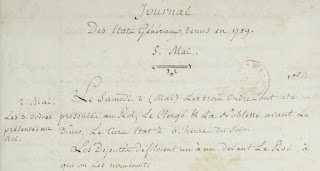 Journal
Des Etats Généraux, tenus en 1789.
5. Mai.
2. Mai.
Les 3. ordres
présentés au
Roi.
Le Samedi 2 (Mai) Les trois Ordres ont été
présentés au Roi, Le Clergé & La Noblesse avant Le
Diner, Le Tiers Etat à 6. heures du Soir.
Les Députés défiloient un à un devant Le Roi, à
qui on les nommoit.